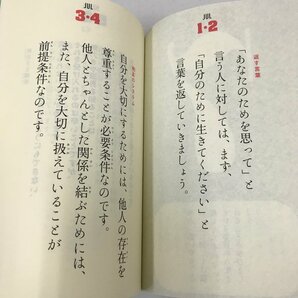 肌
1・2
返す言葉
「あなたのためを思って」と
言う人に対しては、まず、
「自分のために生きてください」と
言葉を返していきましょう。
肌
3・4
自分を大切にするためには、他人の存在を
尊重することが必要条件なのです。
他人とちゃんとした関係を結ぶためには、
また、自分を大切に扱えていることが
前提条件なのです。